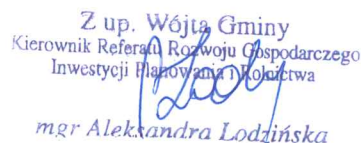 Z up. Wójta Gminy
Kierownik Referatu Rozwoju Gospodarczego
Inwestycji Planowania i Rolnictwa
mgr Aleksandra Lodzińska